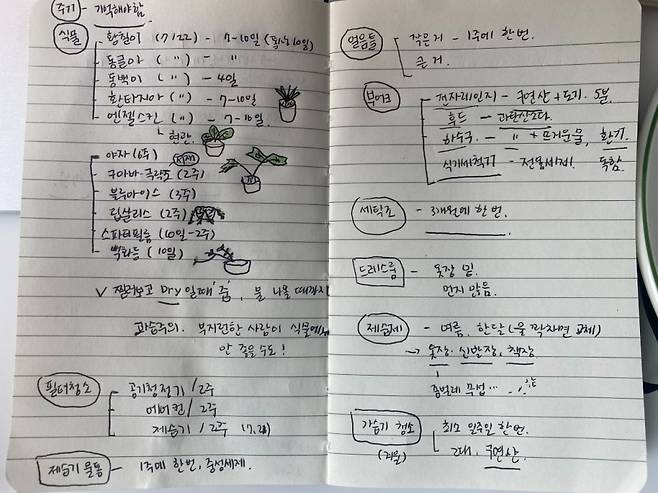 주기 - 기록해야함
식물
황칠이 (7/22) - 7-10일 (통난 10일)
동글이 ( " ) - "
동백이 ( " ) - 4일
환타지아 ( " ) - 7-10일
엔젤스킨 ( " ) - 7-10일
현관
야자 (6주) 서재
구아바·극락조 (2주)
블루아이스 (3주)
립살리스 (2주)
스파티필룸 (10일-2주)
백화등 (10일)
∨ 찔러보고 Dry 일때 줌, 물 나올 때까지
과습주의. 부지런한 사람이 식물에게
안 좋을수도!
필터청소
공기청정기 / 2주
에어컨 / 2주
제습기 / 2주
제습기 물통 - 1주에 한번, 중성세제.
얼음틀
작은거 - 1주에 한번.
큰거.
부엌
전자레인지 - 구연산 + 도기. 5분.
후드 - 과탄산소다.
하수구 - " + 뜨거운물, 환기.
식기세척기 - 전용세제. 독함.
세탁조 - 3개월에 한번.
드레스룸 - 옷장 밑.
먼지 많음.
제습제 - 여름, 한달 (물 꽉차면 교체)
→ 옷장. 신발장, 책장
좀벌레 무섭...
가습기 청소
(겨울)
최소 일주일 한번.
2대, 구연산.